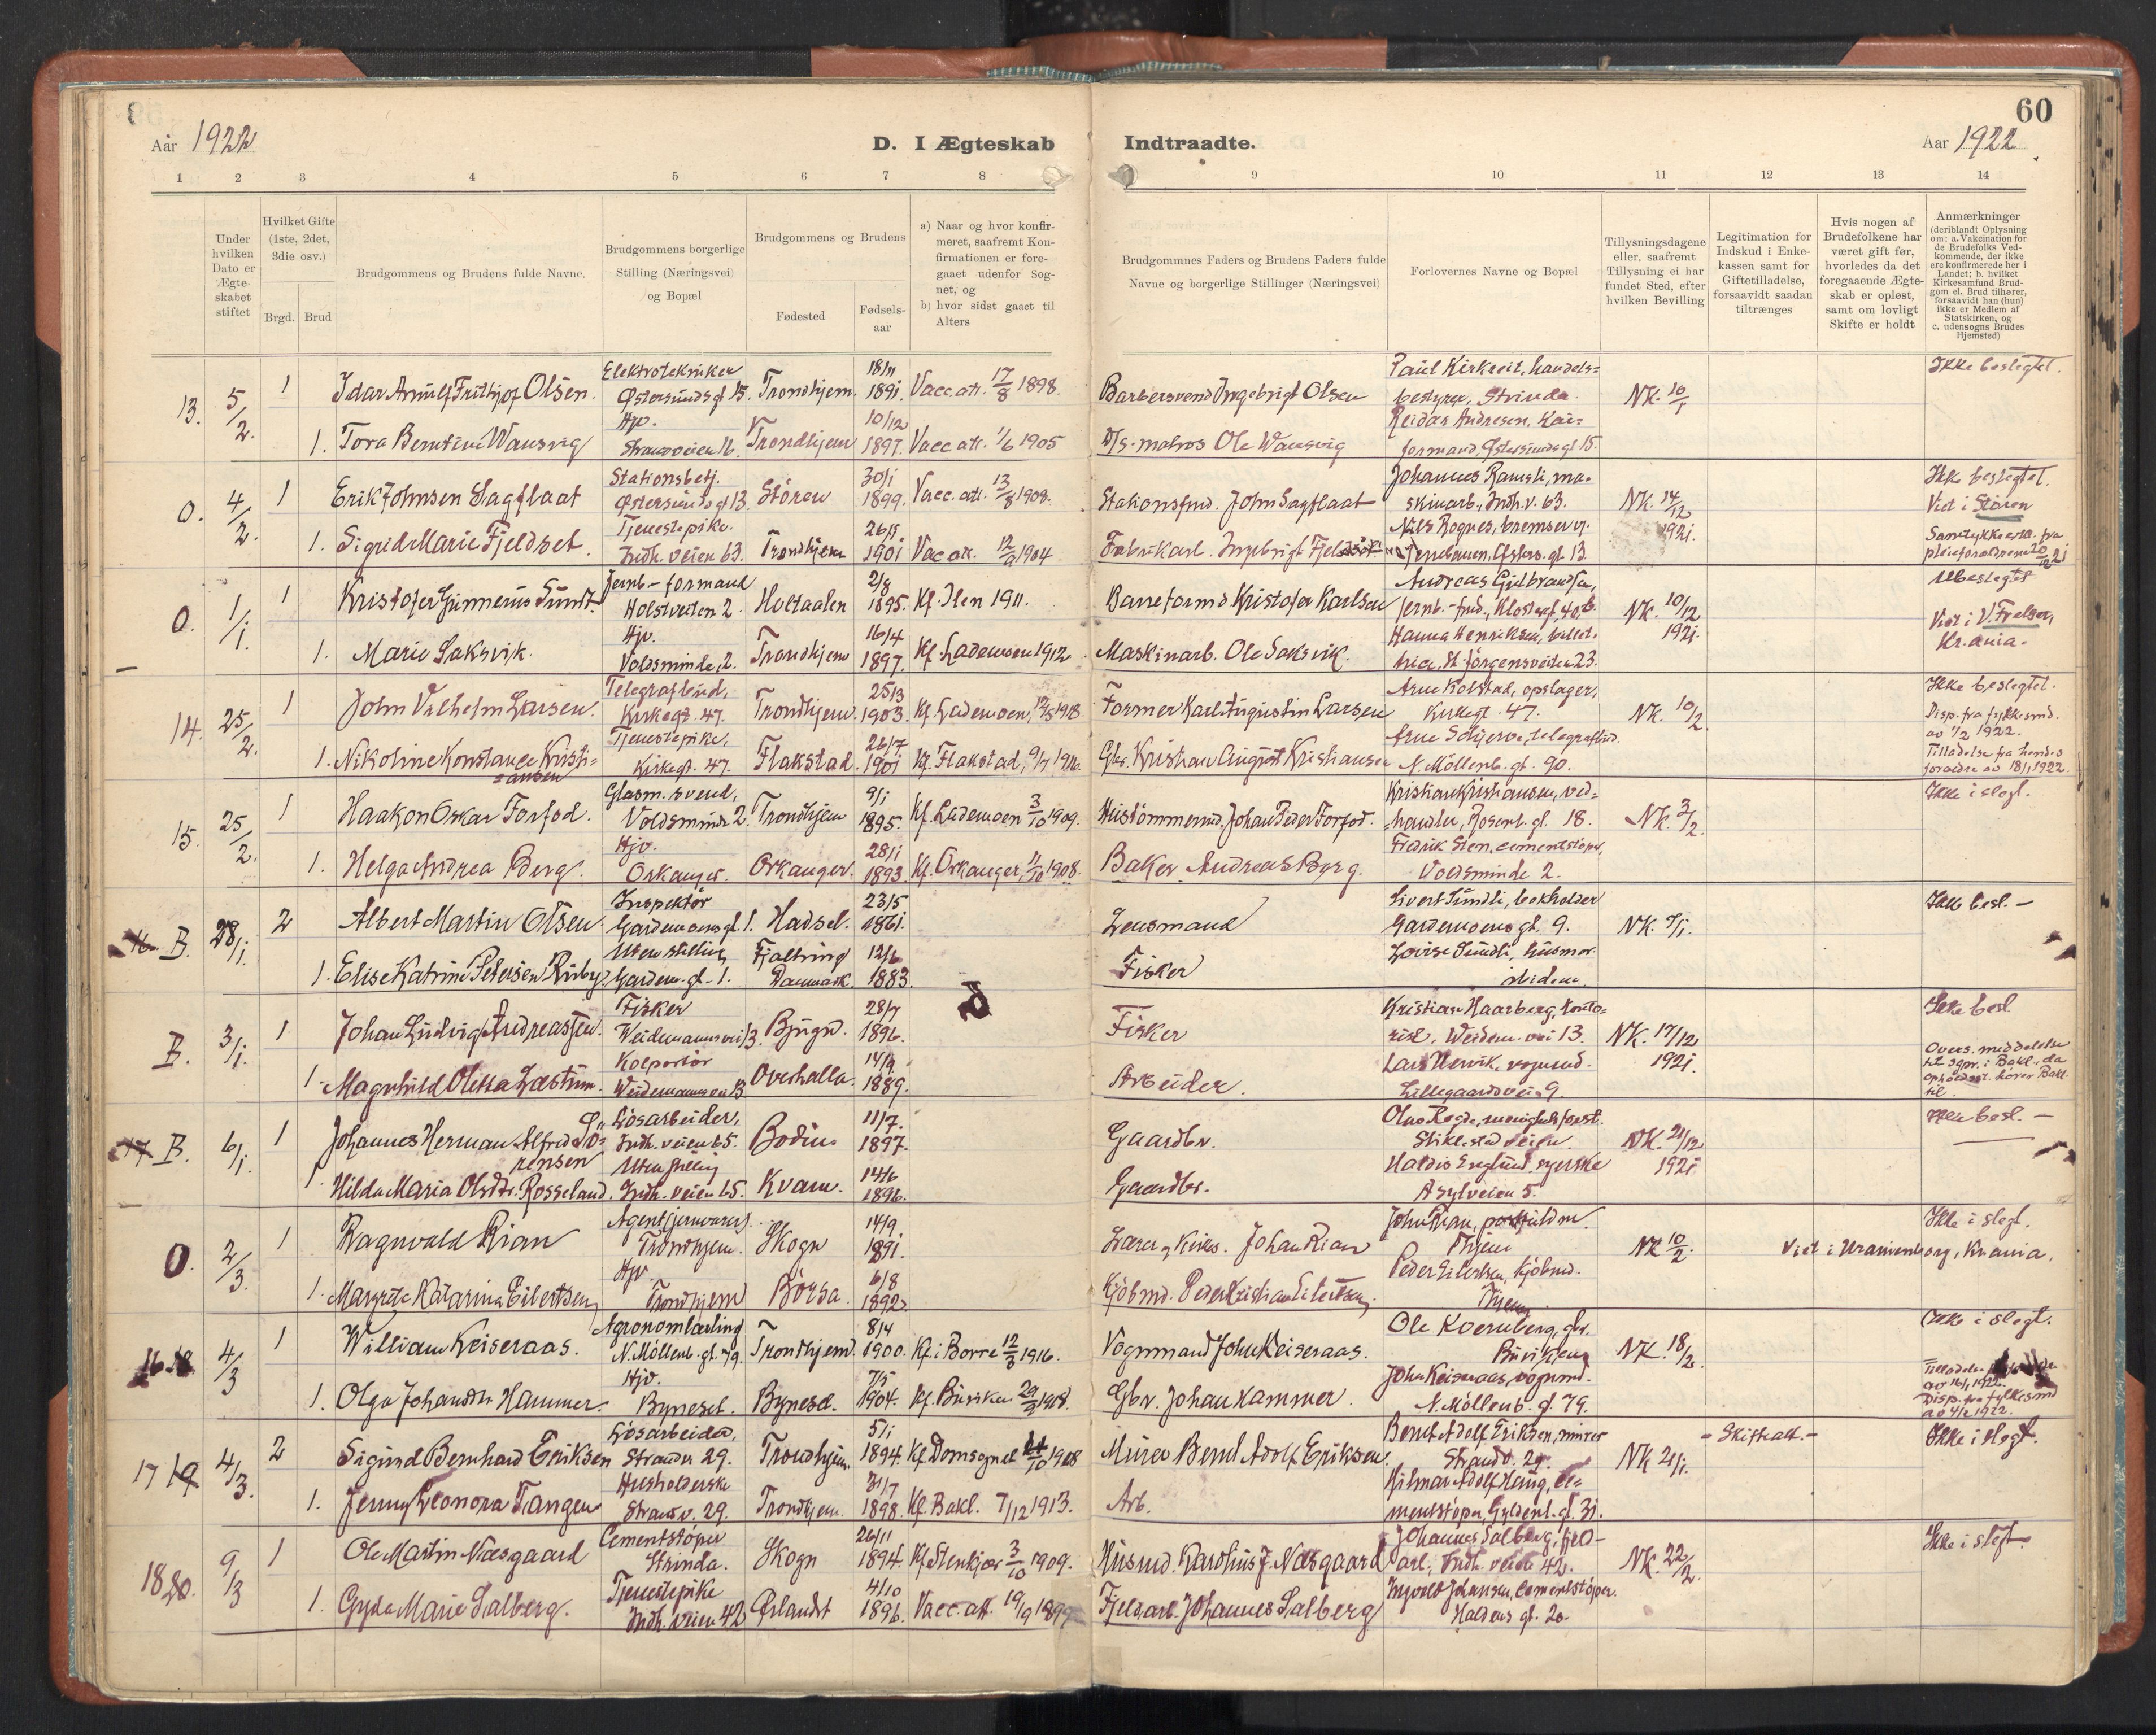 60
Aar 1922
D. I Ægteskab
Indtraadte.
Aar 1922.
1 2 3 4 5 6 7 8
9 10 11 12 13 14
Under hvilken Dato er Ægte-skabet stiftet
Hvilket Gifte (1ste, 2det, 3die osv.)
Brgd. Brud
Brudgommens og Brudens fulde Navne.
Brudgommens borgerlige Stilling (Næringsvei) og Bopæl
Brudgommens og Brudens
Fødested
Fødsels-aar
a) Naar og hvor konfir-meret, saafremt Kon-firmationen er fore-gaaet udenfor Sog-net, og
b) hvor sidst gaaet til Alters
Brudgommnes Faders og Brudens Faders fulde Navne og borgerlige Stillinger (Næringsvei)
Forlovernes Navne og Bopæl
Tillysningsdagene eller, saafremt Tillysning ei har fundet Sted, efter hvilken Bevilling
Legitimation for Indskud i Enke-kassen samt for Giftetilladelse, forsaavidt saadan tiltrænges
Hvis nogen af Brudefolkene har været gift før, hvorledes da det foregaaende Ægte-skab er opløst, samt om lovligt Skifte er holdt
Anmærkninger (deriblandt Oplysning om: a. Vakcination for de Brudefolks Ved-kommende, der ikke ere konfirmerede her i Landet; b. hvilket Kirkesamfund Brud-gom el. Brud tilhører, forsaavidt han (hun) ikke er Medlem af Statskirken, og c. udensogns Brudes Hjemsted)
13. 5/2. 1 Idar Arnulf Frithjof Olsen. Elektrotekniker Østersundsgt 15. Trondhjem. 18/11 1891. Vacc. att. 17/8 1898. Barbersvend Ingebrigt Olsen Paul Kirkreit, handels=bestyrer, Strinda. NK. 10/1 Ikke beslegtet.
1. Tora Berntine Wansvig Hjv. Strandveien 16. Trondhjem 10/12 1897. Vacc att. 1/6 1905 D/S. matros Ole Wansvig Reidar Andresen, Kai=formand, Østersundsgt 15.
0. 4/2. 1 Erik Johnsen Sagflaat Stationsbetj. Østersundsgt 13. Støren 30/1 1899. Vacc. att. 13/8 1909. Stationsfmd. John Sagflaat Johannes Ramsli, ma-skinarb., Indh.v. 63. NK. 14/12 1921. Ikke beslegtet. Viet i Støren
1. Sigrid Marie Fjeldset. Tjenestepike. Indh. veien 63. Trondhjem 1901 Vac att. 12/9 1904. Fabrikarb. Ingebrigt Fjeldset Nils Rognes, bremser v. jernbanen, Østers. gt 13. Samtykke erkl. fra pleieforældrene 20/12 21
0. 1/1. 1 Kristofer Gunnerius Sundt. Jernb.-formand Holstveiten 2. Holtaalen 2/8 1895. Kf. Ilen 1911. Barreformd Kristofer Karlsen Andreas Gulbrandsen, jernb.-fmd., Klosterg. 40b. NK. 10/12 1921. Ubeslegtet Viet i V. Frelser, Kr.ania.
1. Marie Saksvik. Hjv. Voldsminde 2. Trondhjem 16/4 1897. Kf. Lademoen 1912 Maskinarb. Ole Saksvik. Hanna Henriksen, St. Jørgensveiten 23.
14. 25/2. 1 John Vilhelm Larsen. Telegrafbud, Kirkegt. 47. Trondhjem. 25/3 1903. Kf. Lademoen, 12/5 1918. Former Karl Augustin Larsen Arne Kolstad, opslager, Kirkegt. 47. NK. 10/2 Ikke beslegtet. Disp. fra fylkesmd. av 1/2 1922.
1. Nikoline Konstance Kristi=ansen Tjenestepike, Kirkegt. 47. Flakstad. 26/7 1901 Kf. Flakstad, 9/7 1916. Gbr. Kristian August Kristiansen Arne Schjerve, telegrafbud. N. Möllenb. gt. 90. Tilladelse fra hendes foraldre av 18/1 1922.
15. 25/2. 1 Haakon Oskar Forfod. Glasm. svend, Voldsminde 2. Trondhjem 9/1 1895. Kf. Lademoen 3/10 1909. Hustømmermd. Johan Peder Forfod. Kristian Kristiansen, ved=handler, Rosenb. gt. 18. NK. 3/2. Ikke i slegt.
1. Helga Andrea Berg. Hjv. Orkanger. Orkanger. 28/1 1893 Kf. Orkanger, 11/10 1908. Baker Andreas Berg. Fredrik Sten, cementstøper, Voldsminde 2.
B. 28/1. 2 Albert Martin Olsen Inspektør Gardemoensgt. 1. Hadsel. 23/5 1861. Lensmand Sivert Sundli, bokholder Gardemoens gt. 9. NK. 7/1. Ikke besl. -
1. Elise Katrine Petersen Rinby. Uten stilling Gardem. gt. 1. Fjaltring Danmark. 12/6 1883. Fisker Lovise Sundli, husmor. ibidem.
B. 3/1. 1 Johan Ludvig Andreassen. Fisker Weidemannsvei 13. Bjugn. 28/7 1896. Fisker Kristian Haarberg, konto=rist, Weidem. vei 13. NK. 17/12 1921. Ikke besl.
1. Magnhild Oletta Lastum. Kolportør Weidemannsvei 13 Overhalla. 14/9 1889. Arbeider. Lars Hervik, vognmd. Lillegaardsvei 9. Overs. meddelelse til Sgpr. i Bakl., da opholdsst. hører Bakl. til.
17 B. 6/1. 1 Johannes Herman Alfred Sö=rensen Løsarbeider, Indh. veien 65. Bodin. 11/7. 1897. Gaardbr. Olav Rogde, menighetsforst. Stiklestadveien NK. 21/12 1921. Ikke besl. -
1 Hilda Maria Olsdtr. Rosseland. Uten stilling Indh. veien 65. Kvam. 14/6 1896. Gaardbr. Haldis Englund, syerske Asylveien 5.
0. 2/3. 1 Ragnvald Rian Agent (jernvarer). Trondhjem. Skogn 14/9 1891. Lærer og Kirkes. Johan Rian John Rian, postfuldm. Thjem NK 10/2. Viet i Uranienborg, Kr.ania. Ikke i slegt.
1. Margrete Katarina Eilertsen Hjv Trondhjem Börsa. 6/8 1892. Kjøbmd. Peder Kristian Eilertsen. Peder Eilertsen, kjøbmd. Thjem.
16 4/3 1 William Keiseraas. Agronomlærling N. Möllenb. gt. 79. Trondhjem. 8/4 1900. Kf. i Borre 12/3 1916. Vognmand John Keiseraas. Ole Koernberg, gbr. Buviken NK. 18/2. Ikke i slegt.
1. Olga Johansdtr. Hammer. Hjv. Byneset. Byneset. 7/5 1904. Kf. Buviken 29/9 1918. Gbr. Johan Hammer. John Keiseraas, vognmd. N. Möllenb. gt. 79. Disp. fra fylkesmd av 4/2 1922.
17 19 4/3. 2 Sigurd Bernhard Eriksen Løsarbeider, Strandv. 29. Trondhjem. 5/1 1894. Kf. Domsognet 10 1908 Murer Bernt Adolf Eriksen. Bernt Adolf Eriksen, murer Strandv. 29. NK 21/1. - Skifteatt. - Ikke i slegt.
1. Jenny Leonora Tangen Husholderske Strandv. 29. Trondhjem. 31/7 1898. Kf. Bakl. 7/12 1913. Arb. Hilmar Adolf Haug, ce=mentstøper, Gyldenl. gt. 31.
18 20. 9/3 1 Ole Martin Næsgaard Cementstøper Strinda. Skogn 26/11 1894. Kf. Stenkjær 3/10 1909. Husmd. Kardius J. Næsgaard Johannes Salberg, fjeld-arb., Indh. veien 42. NK. 22/2. Ikke i slegt.
1. Gyda Marie Salberg. Tjenestepike Indh. veien 42 Ørlandt 4/10 1896. Vacc. att. 19/9 1899 Fjeldarb. Johannes Salberg Ingvald Johansen, Cementstøper. Haldens gt. 20.